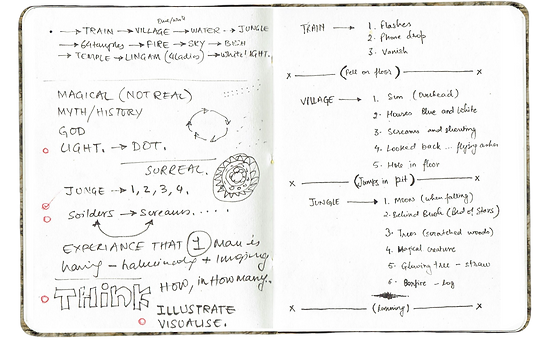 • → TRAIN → VILLAGE → WATER → JUNGLE
→ FIRE → SKY → BISH
→ TEMPLE → LINGAM (4 ladies) → White LIGHT.
MAGICAL (NOT REAL)
MYTH/HISTORY
GOD
LIGHT. → DOT.
SURREAL.
JUNGE → 1, 2, 3, 4.
Soilders → Screams. . . . .
EXPERIANCE THAT 1 Man is
having – +
THINK HOW, in HOW many.
ILLUSTRATE
VISUALISE.
TRAIN → 1. Flashes
2. Phone drop
3. Vanish
x — (Fell on floor) — x
VILLAGE → 1. Sun (Overhead)
2. Houses Blue and White
3. Screams and shouting
4. Looked back ... flying ashes
5. Hole in floor
x — (Jumps in pit) — x
JUNGLE → 1. Moon (when falling)
2. Behind Bush (Bed of Stars)
3. Trees (scratched woods)
4. Magical creature
5. Glowing tree – straw
6. Bonfire – log
x — (Running) — x